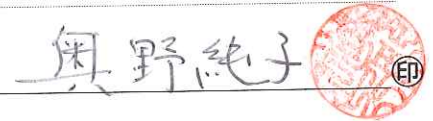 奥野純子 ㊞